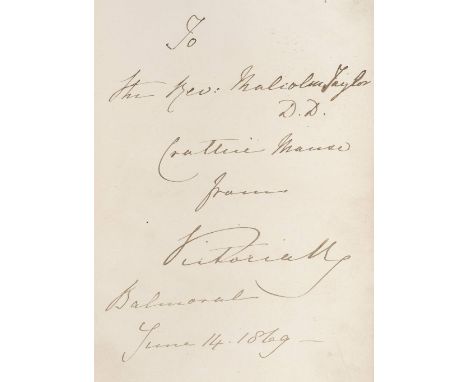 To
the Rev: Malcolm Taylor
D.D.
Crathie Manse
from
Victoria R
Balmoral
June 14. 1869 –